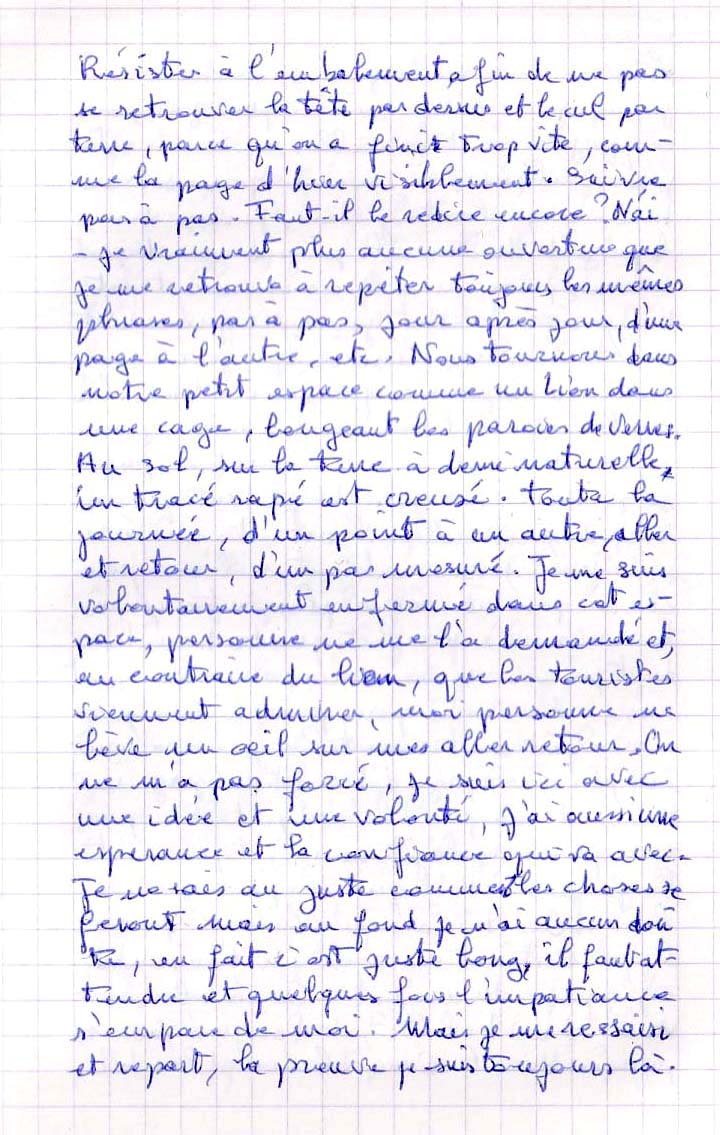 Résister à l'emballement, afin de ne pas
se retrouver la tête par dessus et le cul par
terre, parce qu'on a finit trop vite, com-
me la page d'hier visiblement. Suivre
pas à pas. Faut-il le redire encore ? N'ai
-je vraiment plus aucune ouverture que
je me retrouve à repéter toujours les mêmes
phrases, pas à pas, jour après jour, d'une
page à l'autre, etc. Nous tournons dans
notre petit espace comme un lion dans
une cage, longeant les parois de verres.
Au sol, sur la terre à demi naturelle,
un tracé rapé est creusé. Toute la
journée, d'un point à un autre, aller
et retour, d'un pas mesuré. Je me suis
volontairement enfermé dans cet es-
pace, personne ne me l'a demandé et,
au contraire du lion, que les touristes
viennent admirer, moi personne ne
lève un oeil sur mes aller retour. On
ne m'a pas forcé, je suis ici avec
une idée et une volonté, j'ai aussi une
esperance et la confiance qui va avec.
Je ne sais au juste comment les choses se
feront mais au fond je n'ai aucun dou
te, en fait c'est juste long, il faut at-
tendre et quelques fois l'impatiance
s'empare de moi. Mais je me ressaisi
et repart, la preuve je suis toujours là.